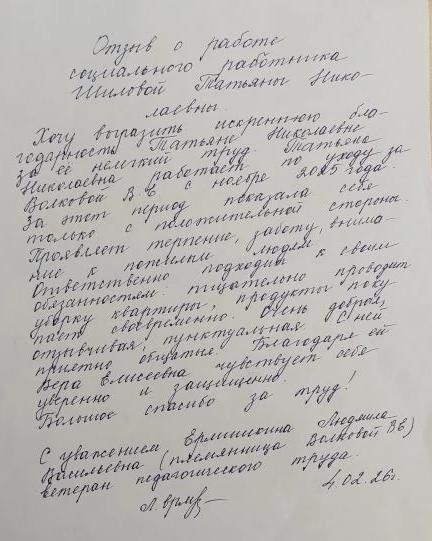 Отзыв о работе
социального работника
Шиловой Татьяны Нико-
лаевны.
Хочу выразить искреннюю бла-
годарность Татьяне Николаевне
за её нелёгкий труд. Татьяна
Николаевна работает по уходу за
Волковой В Е с ноября 2025 года.
За этот период показала себя
только с положительной стороны.
Проявляет терпение, заботу, внима-
ние к пожилым людям.
Ответственно подходит к своим
обязанностям: тщательно проводит
уборку квартиры, продукты поку
пает своевременно. Очень добрая,
отзывчивая, пунктуальная С ней
приятно общаться. Благодаря ей
Вера Елисеевна чувствует себя
уверенно и защищенно.
Большое спасибо за труд!
С уважением Ермишкина Людмила
Васильевна (племянница Волковой ВЕ)
ветеран педагогического труда.
4.02.26г.